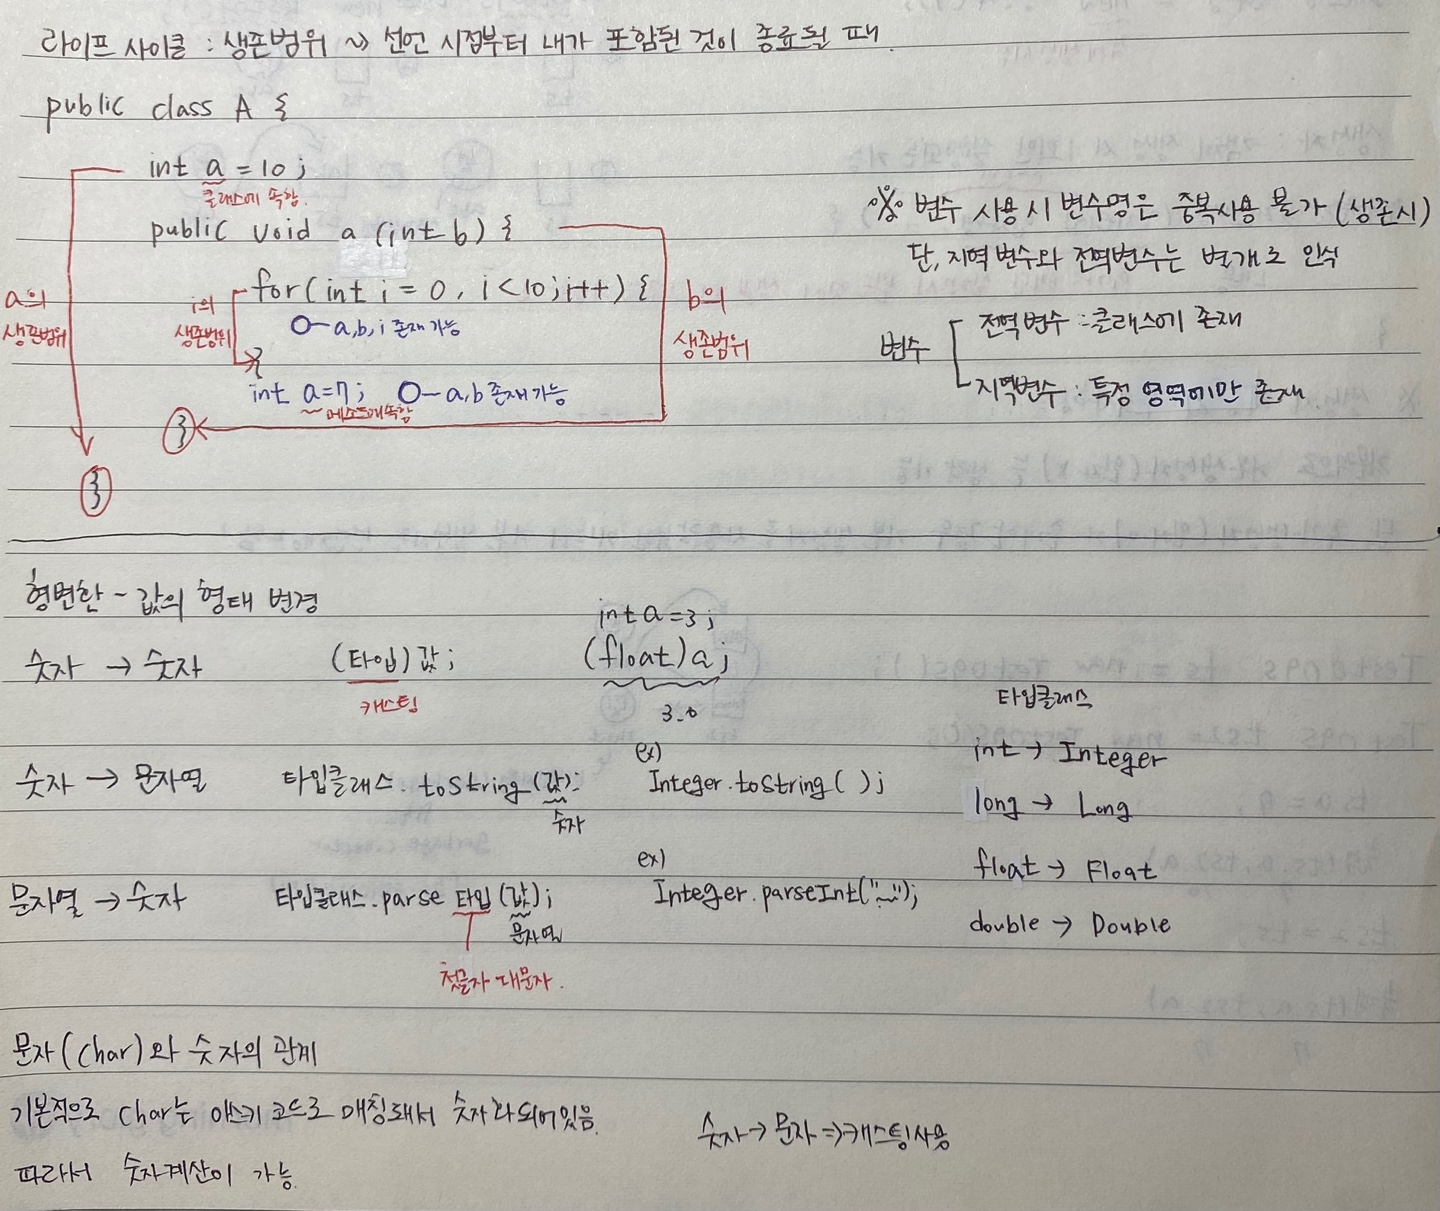 라이프 사이클 : 생존범위 ~> 선언 시점부터 내가 포함된 것이 종료될 때.
public class A {
int a = 10 ;
클래스에 속함.
public void a (int b) {
for( int i = 0, i<10; i++) {
O-a,b,i 존재 가능
}
int a=7; O-a,b 존재 가능
메소드에 속함
}
}
a의
생존범위
i의
생존범위
b의
생존범위
※ 변수 사용 시 변수명은 중복사용 불가 (생존시)
단, 지역변수와 전역변수는 별개로 인식
변수
전역변수 : 클래스에 존재
지역변수 : 특정 영역에만 존재.
형변환 - 값의 형태 변경
숫자 → 숫자 (타입) 값 ;
캐스팅
int a = 3 ;
(float) a ;
3.0
숫자 → 문자열 타입클래스. toString (값);
숫자
ex)
Integer.toString( ) ;
문자열 → 숫자 타입클래스.parse 타입 (값);
문자열
첫글자 대문자.
ex)
Integer.parseInt("~");
타입클래스
int → Integer
long → Long
float → Float
double → Double
문자(char)와 숫자의 관계
기본적으로 char는 아스키 코드로 매칭돼서 숫자화되어있음.
따라서 숫자계산이 가능.
숫자→ 문자 => 캐스팅사용